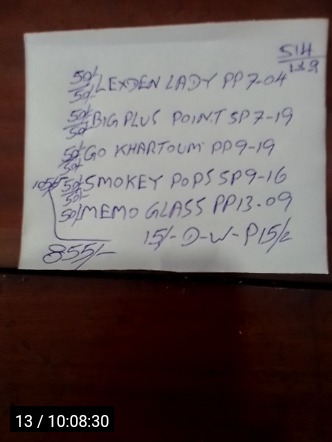 514
139
50/- LEXDEN LADY PP 7-04
50/-
50/- BIG PLUS POINT SP 7-19
50/-
50/- GO KHARTOUM PP 9-19
50/-
50/- SMOKEY POPS SP 9-16
50/-
50/- MEMO GLASS PP 13-09
15/- D-W-P 15/2
855/-
13 / 10:08:30